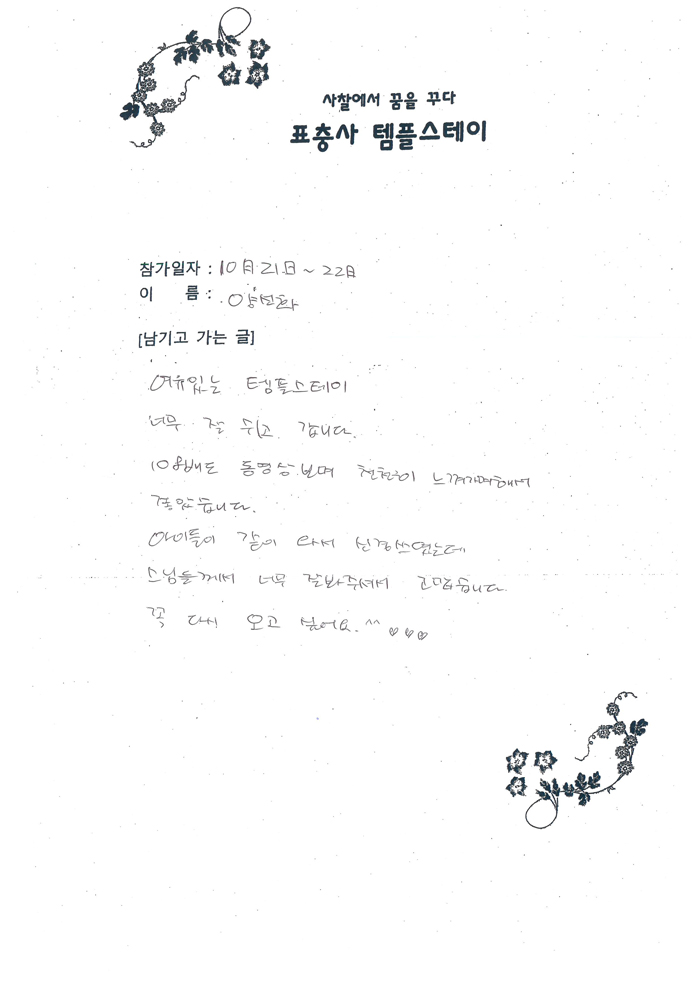 사찰에서 꿈을 꾸다
표충사 템플스테이
참가일자 : 10月 21日 ~ 22日
이 름 : 양선화
[남기고 가는 글]
여유있는 템플스테이
너무 잘 쉬고 갑니다.
108배도 동영상보며 천천히 느껴가며해서
좋았습니다.
아이들이 같이 와서 신경쓰였는데
스님들께서 너무 잘봐주셔서 고맙습니다.
꼭 다시 오고 싶어요. ^^ ♡♡♡